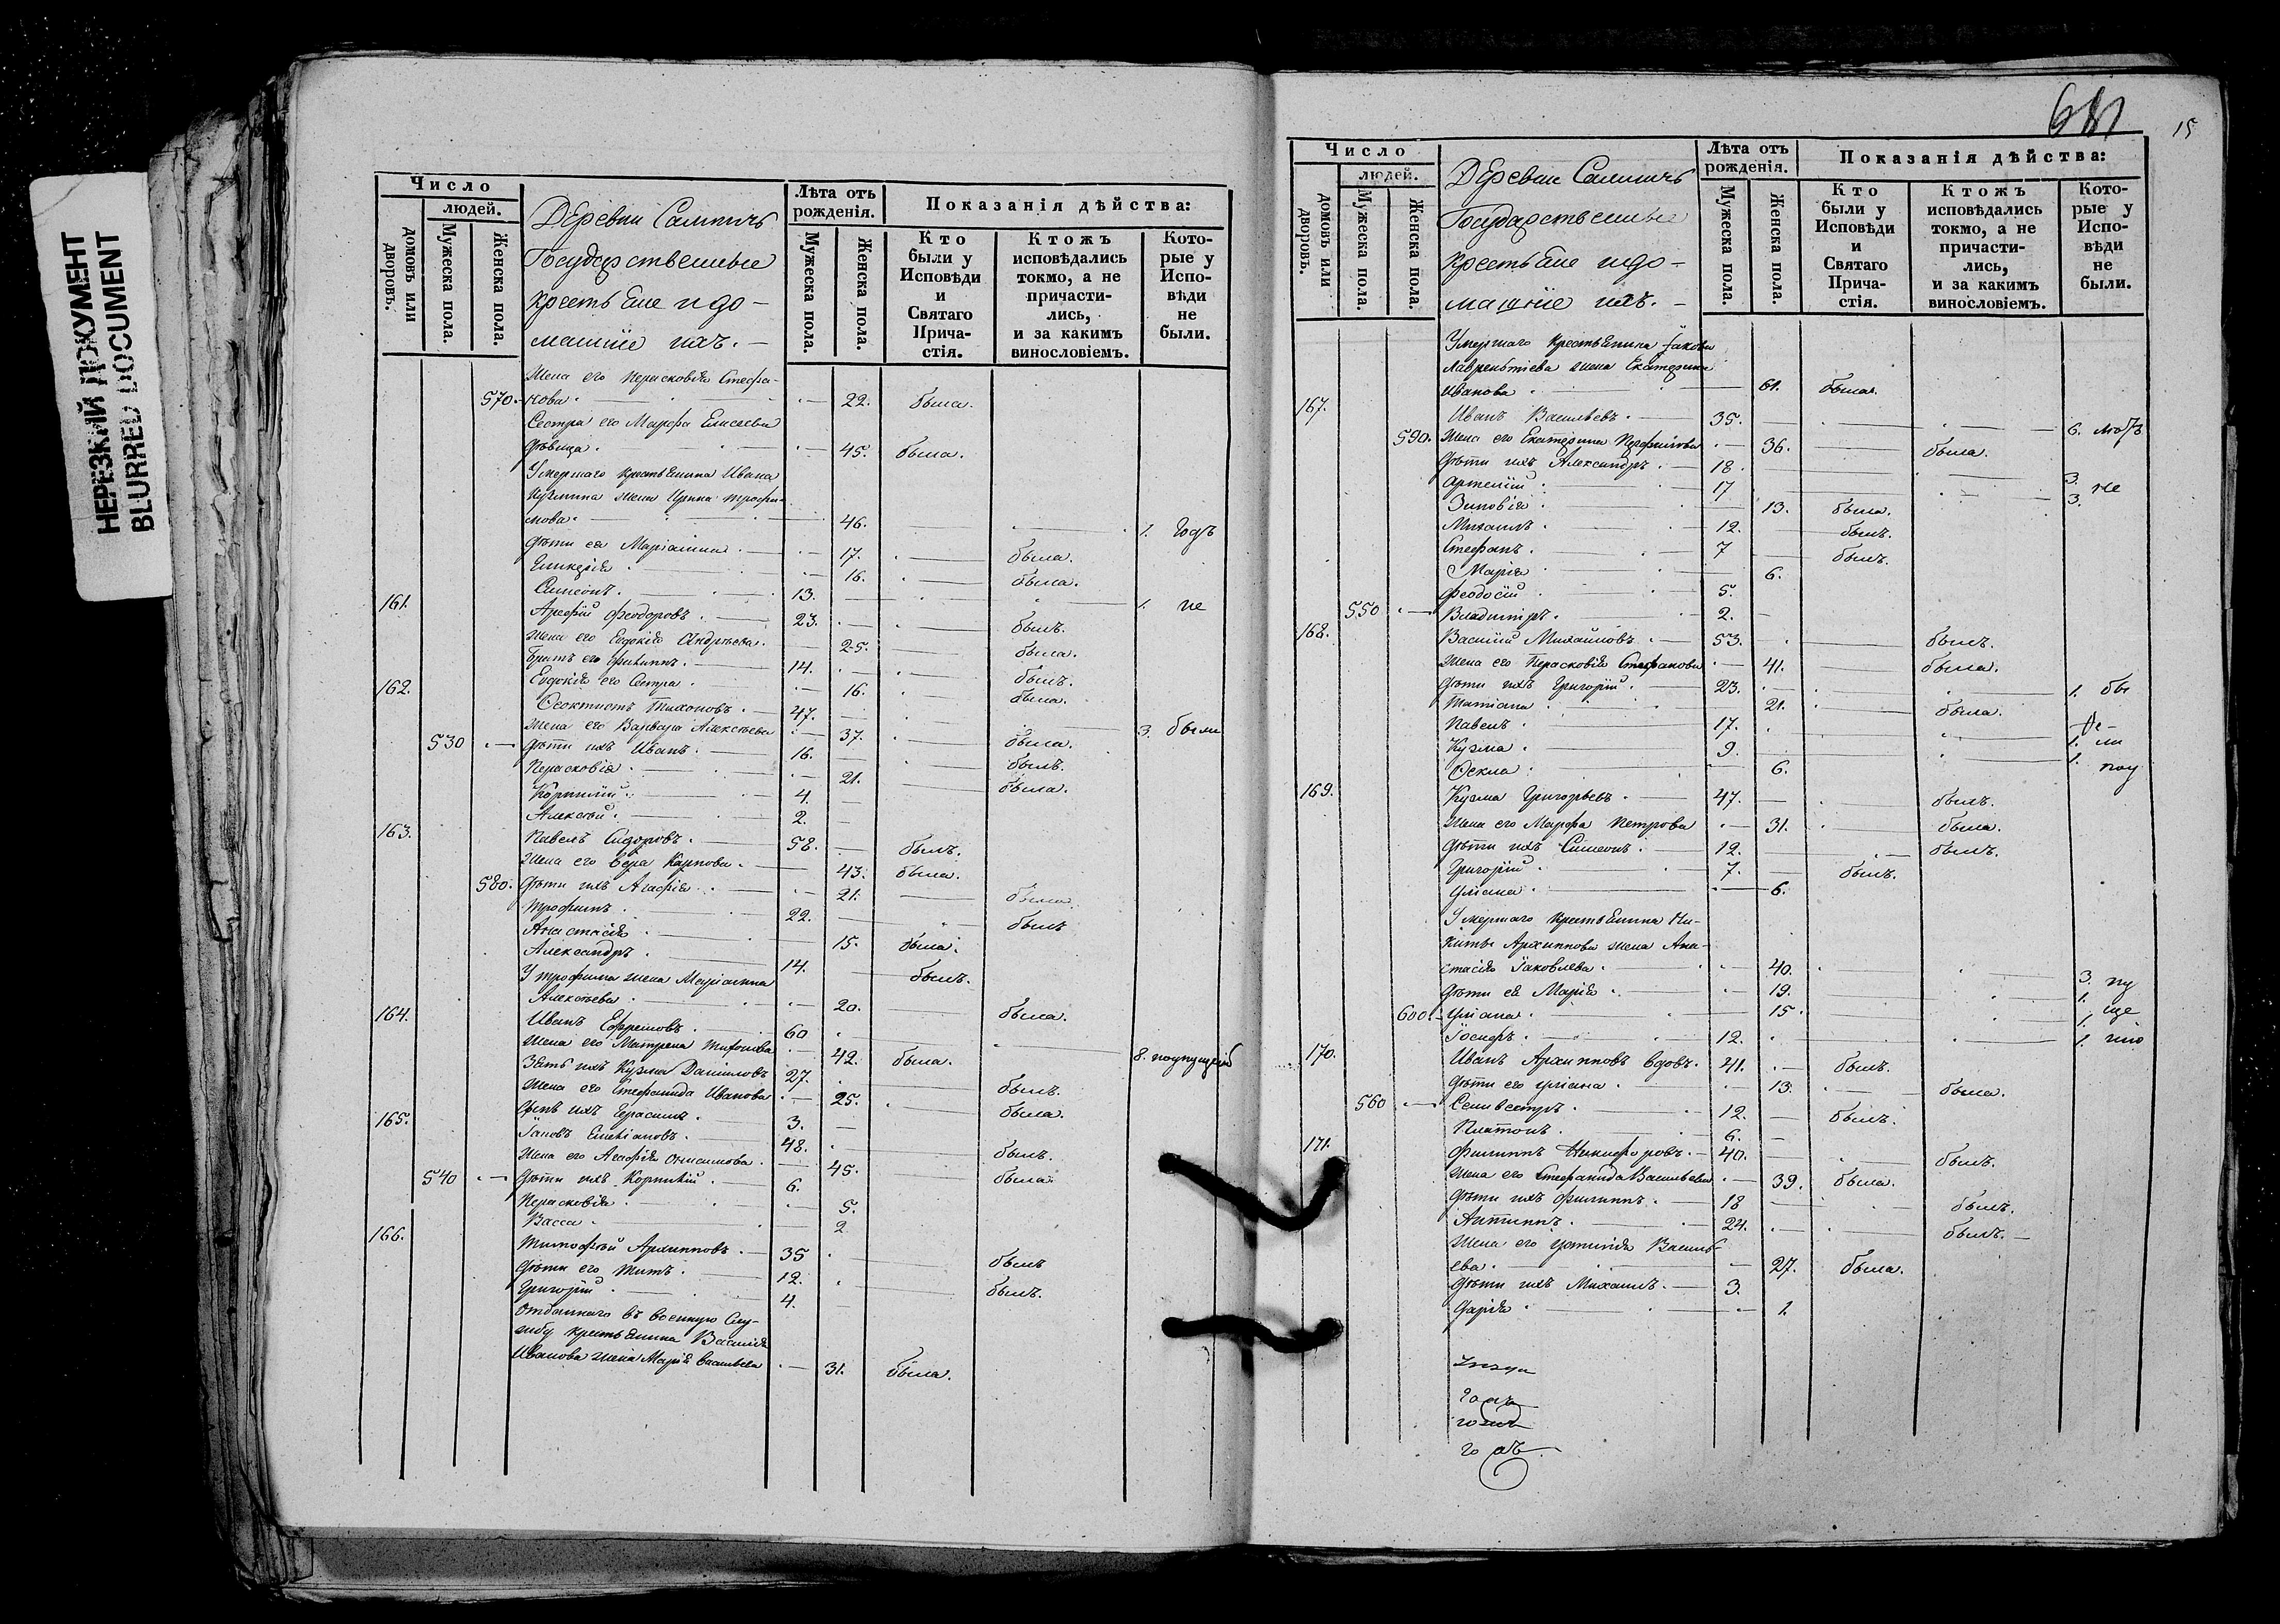 НЕРЕЗКИЙ ДОКУМЕНТ
BLURRED DOCUMENT
Число
людей.
домовъ или дворовъ.
Мужеска пола.
Женска пола.
Деревни
Государственные
крестьяне и до-
машніе ихъ. —
Лѣта отъ рожденія.
Мужеска пола.
Женска пола.
Показанія дѣйства:
Кто были у Исповѣди и Святаго Прича-стія.
Ктожъ исповѣдались токмо, а не причасти-лись, и за какимъ винословіемъ.
Кото-рые у Испо-вѣди не были.
Жена его Перасковія Стефа-
570. нова. 22. была.
Сестра его Марфа Елисеева
дѣвица. 45. была.
Умершаго крестьянина Ивана
Кузмина жена Ирина Трофи-
мова. 46. 1. годъ
дѣти ея Маріанна. 17. была.
16. была.
Симеонъ. 13. 1. не
161. Арефій Феодоровъ. 23. былъ.
Жена его Евдокія Андреева. 25. была.
братъ его Филиппъ. 14. былъ.
Евдокія его сестра. 16. была.
162. Феоктистъ Тихоновъ. 47. 3. были
Жена его Варвара Алексѣева 37. была.
530 дѣти ихъ Иванъ. 16. былъ.
Перасковія. 21. была.
Корнилій. 4.
Алексѣй. 2.
163. Павелъ Сидоровъ. 58. былъ.
Жена его Вера Карпова. 43. была.
580. дѣти ихъ Агафія. 21. была.
Трофимъ. 22. былъ
Анастасія. 15. была.
Александръ. 14. былъ.
У Трофима жена Маріанна
Алексѣева. 20. была.
164. Иванъ Ефремовъ. 60 8.
Жена его Матрена 42. была.
Зять ихъ Кузма Даниловъ 27. былъ.
Жена его Стефанида Иванова 25. была.
сынъ ихъ Герасимъ. 3.
165. Іаковъ 48. былъ.
Жена его Агафія Онисимова. 45. была.
540 дѣти ихъ Корнилій. 6.
Перасковія. 5.
Васса. 2
166. Тимофей Архипповъ. 35 былъ
дѣти его Титъ. 12. былъ.
Григорій. 4.
Отданнаго въ военную слу-
жбу крестьянина Василія
Иванова жена Марія Васильева 31. была.
681
15
Число
людей.
домовъ или дворовъ.
Мужеска пола.
Женска пола.
Деревни
Государственные
крестьяне и до-
машніе ихъ. —
Лѣта отъ рожденія.
Мужеска пола.
Женска пола.
Показанія дѣйства:
Кто были у Исповѣди и Святаго Прича-стія.
Ктожъ исповѣдались токмо, а не причасти-лись, и за какимъ винословіемъ.
Кото-рые у Испо-вѣди не были.
Умершаго крестьянина Іакова
Лаврентіева жена Екатерина
Иванова 61. была.
167. Иванъ Васильевъ. 35. 6.
590. Жена его Екатерина 36. была.
дѣти ихъ Александръ. 18. 3.
Артемій. 17 3. не
Зиновія. 13. была.
Михаилъ. 12. былъ.
Стефанъ. 7 былъ.
Марія 6.
Феодосій 5.
550 Владиміръ. 2.
168. Василій Михайловъ. 53. былъ.
Жена его Перасковія Стефанова 41. была.
дѣти ихъ Григорій. 23. 1.
Татіана 21. была.
Павелъ. 17. 1.
Кузма 9. 1.
Фекла 6.
169. Кузма Григорьевъ. 47. былъ.
Жена его Марфа Петрова 31. была.
дѣти ихъ Симеонъ. 12. былъ.
Григорій 7. былъ.
Уліана 6.
Умершаго крестьянина Ни-
киты Архиппова жена Ана-
стасія Іаковлева. 40. 3.
дѣти ея Марія 19. 1.
600. Уліана. 15. 1.
Іосифъ. 12. 1.
170. Иванъ Архипповъ вдовъ. 41. былъ.
дѣти его Уліана. 13. была.
560 Селивестръ. 12. былъ.
Платонъ. 6.
171. Филиппъ Никифоровъ. 40. былъ.
Жена его Стефанида Васильева 39. была.
дѣти ихъ Филиппъ. 18 былъ.
Антипъ. 24. былъ.
Жена его Василь-
ева. 27. была.
дѣти ихъ Михаилъ. 3.
Дарія 1.